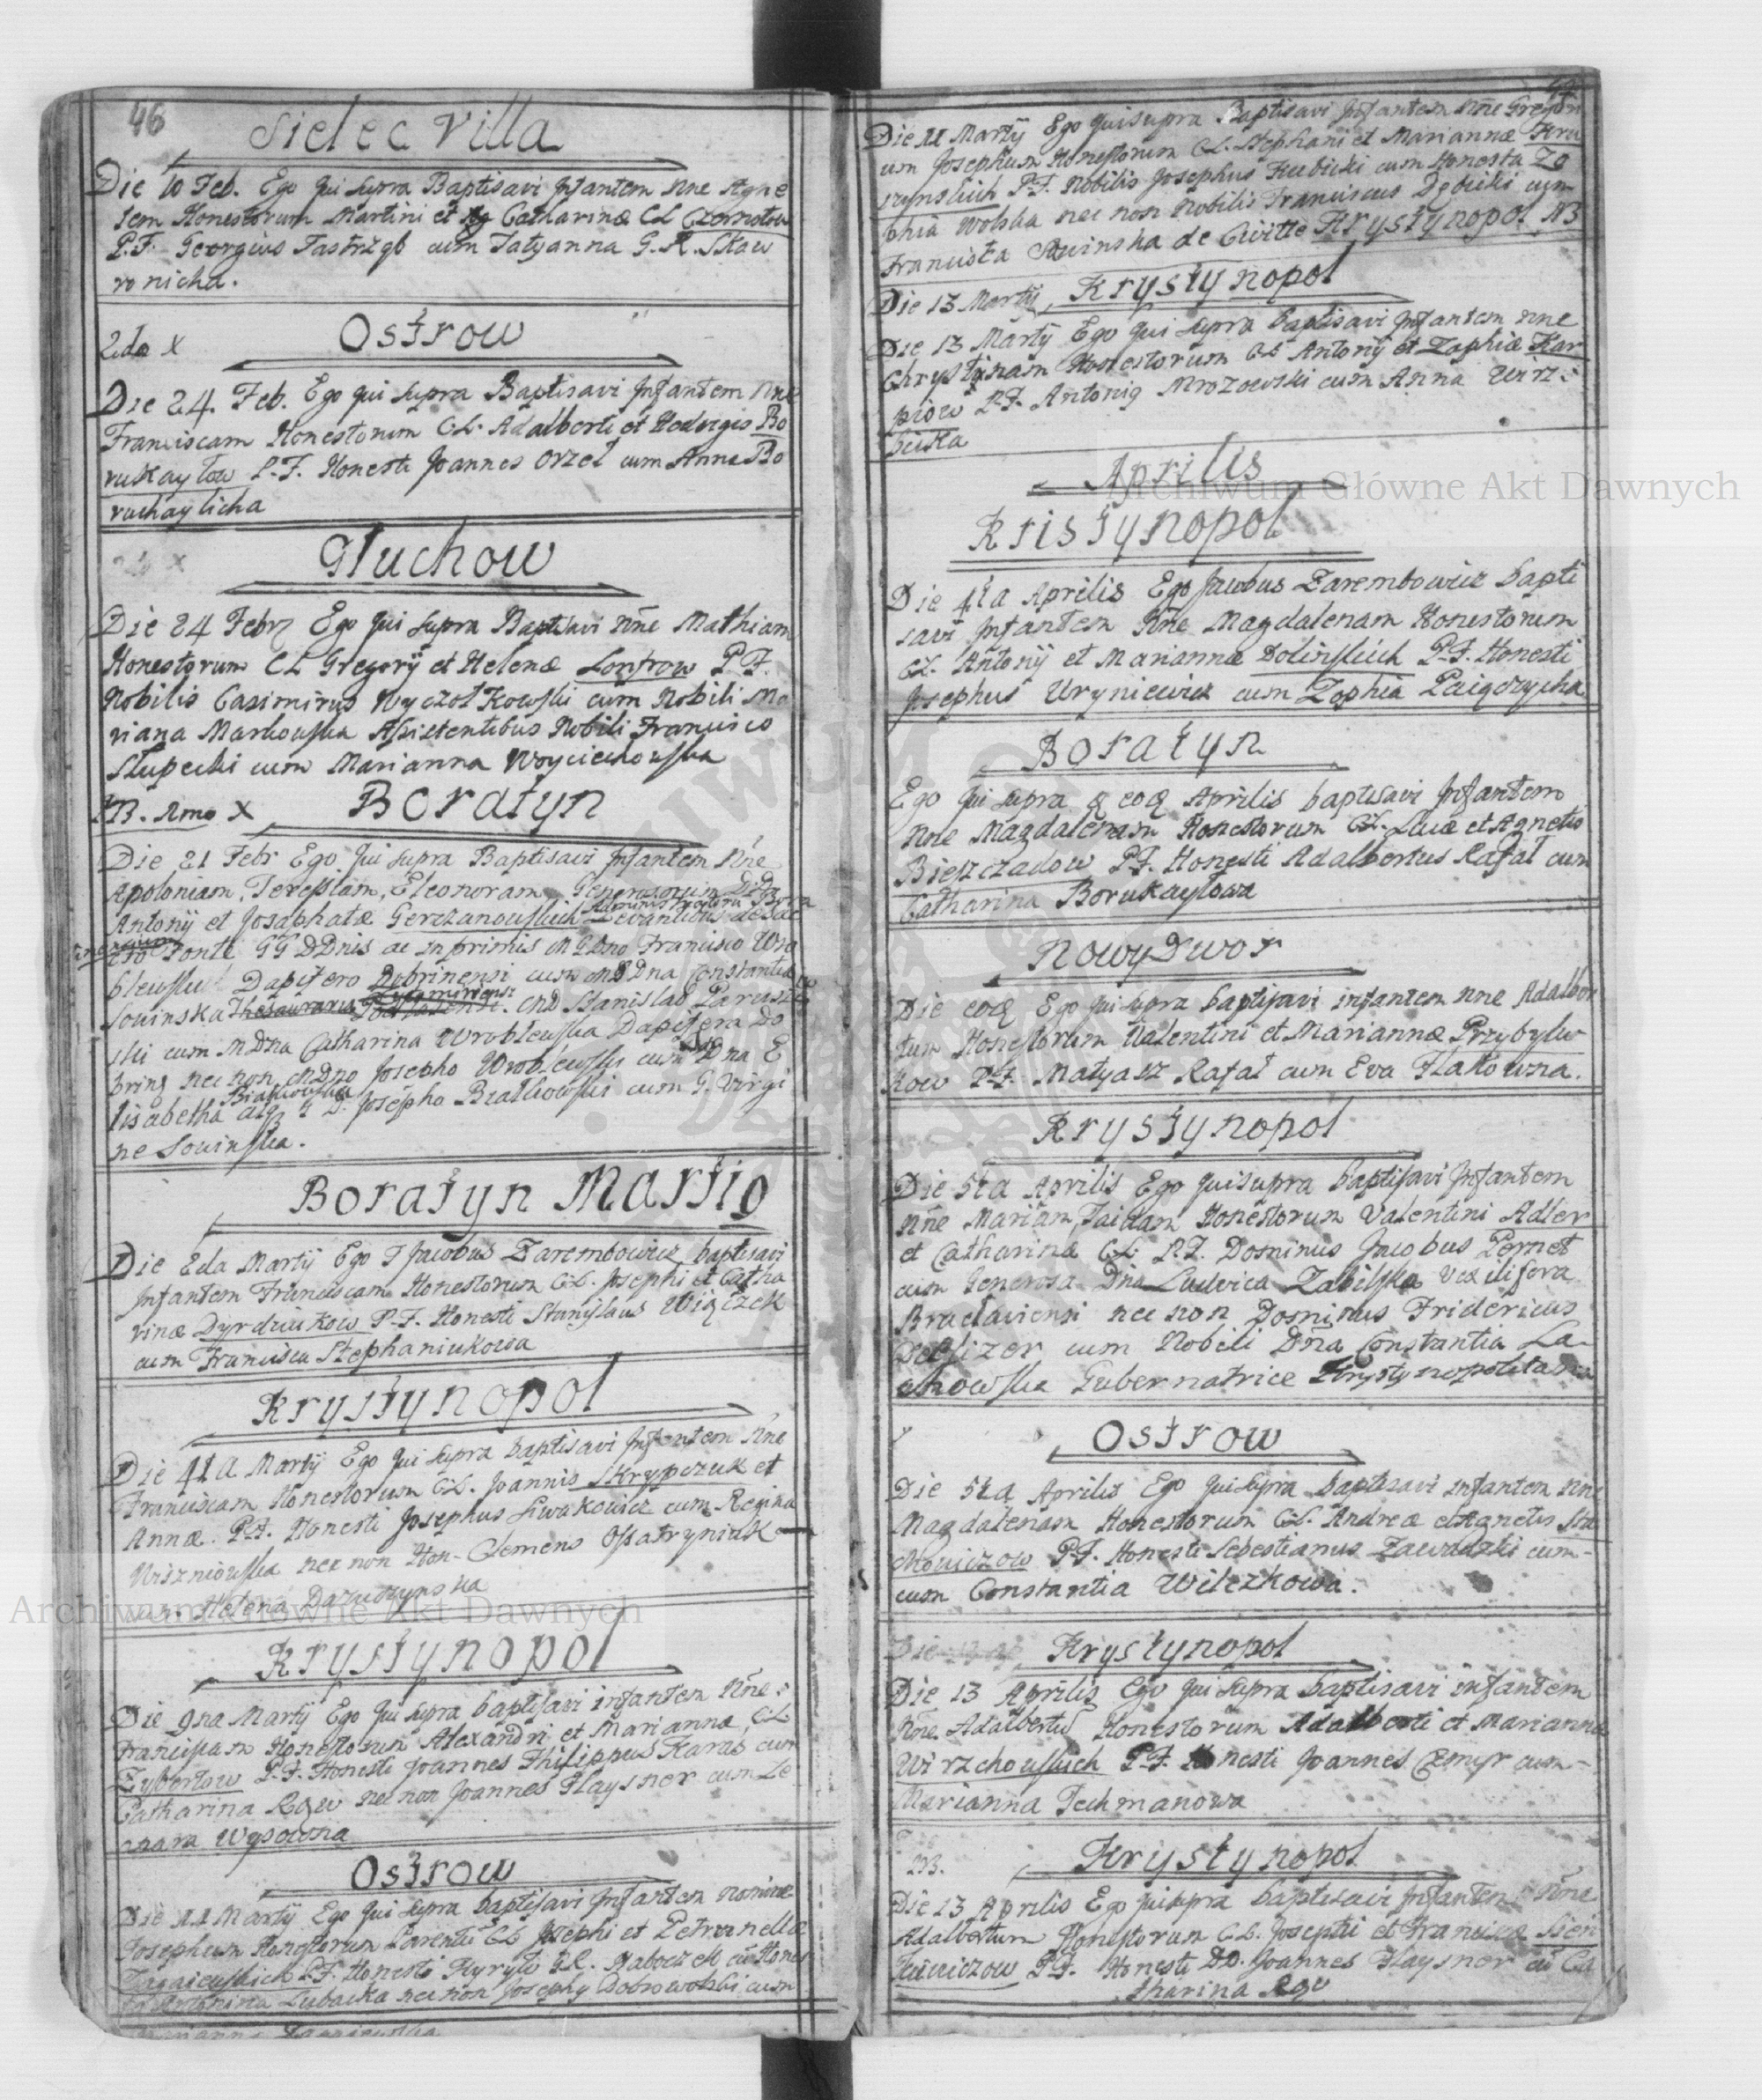 46
Sielec Villa
Die 10 Feb. Ego Qui Supra Baptisavi Infantem Nne Agne
tem Honestorum Martini et Catharinæ CL
P.F. Georgius Jastrząb cum Tatyanna G.R. Skow
ronicha.
Ostrow
2da X
Die 24. Feb. Ego qui supra Baptisavi Infantem Nne
Franciscam Honestorum CL. Adalberti et Hedvigis Bo
rukaylow P.F. Honesti Joannes Orzeł cum Anna Bo
ruchaylicha
Głuchow
Die 24 Febr Ego Qui Supra Baptisavi Nne Mathiam
Honestorum CL Gregorij et Helenæ P.F.
Nobilis Casimirus Wyczołkowski cum Nobili Ma
riana Markowska Assistentibus Nobili Francisco
Słupecki cum Marianna Woyciechowska
NB. Imo X
Boratyn
Die 21 Febr Ego Qui Supra Baptisavi Infantem Nne
Apoloniam, Teressiam, Eleonoram, Generosorum DD
Antonij et Josaphatæ Gerczanowskich Levantibus de Sac
Fonte GG DDnis ac inprimis MGDno Francisco Wro
blewski Dapifero Dobrinensi cum MDna Constantia
Sowinska MD Stanislao
ski cum MDna Catharina Wroblewska Dapifera Do
brins nec non MDno Josepho Wroblewski cum Dna E
lisabetha Białkowska atq G D. Josepho Białkowski cum G. Virgi
ne Sowinska.
Boratyn Martio
Die 2da Martij Ego Jacobus Zarembowicz baptisavi
Infantem Franciscam Honestorum CL. Josephi et Catha
rinæ Dyrdziukow P.F. Honesti Stanislaus Wiączek
cum Francisca Stephaniukowa
Krystynopol
Die 4ta Martij Ego Qui Supra baptisavi Infantem Nne
Franciscam Honestorum CL. Joannis Skrypczuk et
Annæ. P.F. Honesti Josephus Lwakowicz cum Regina
Wiszniowska nec non Hon- Clemens Ossatryniuk
cum Helena
Krystynopol
Die 9na Martij Ego Qui Supra baptisavi infantem Nne:
Franciscam Honestorum Alexandri et Mariannæ, CL
Zybertow P.F. Honesti Joannes Philippus Karas cum
Catharina Rqw nec non Joannes Playsner cum Le
Wysowna
Ostrow
Die 11 Martij Ego Qui Supra baptisavi Infantem nomine
Josephum Honestorum Parentū CL Josephi et Petronellæ
P.F. Honesti Kyryło G.R. cū Hones
ta Antonina Lubacka nec non Josephg Dobrowolski cum
Die 11 Martij Ego Quisupra Baptisavi Infantem Nne Gregori
um Josephum Honestorum CL. Stephani et Mariannæ Kru
szynskich P.F. Nobilis Josephus Kubicki cum Honesta Zo
phia Wolska nec non Nobilis Franciscus Dębicki cum
Francisca de Civitte Krystynopol NB
Die 13 Martij, Krystynopol
Die 13 Martij Ego Qui Supra baptisavi Infantem Nne
Chrystinam Honestorum CL Antonij et Zophiæ Kar
piow P.F. Antonig Mrozowski cum Anna Wirz:
bicka
Aprilis
Kristynopol
Die 4ta Aprilis Ego Jacobus Zarembowicz bapti
savi Infantem Nne Magdalenam Honestorum
CL. Antonij et Mariannæ Dolinskich P.F. Honesti
Josephus Uryniewicz cum Zophia
Boratyn
Ego Qui supra eoq Aprilis baptisavi Infantem
Nne Magdalenam Honestorum CL. Lucæ et Agnetis
Bieszczadow P.F. Honesti Adalbertus Rafał cum
Catharina Borukaylowa
Nowy Dwor
Die eoq Ego Qui Supra baptisavi infantem Nne Adalber
tum Honestorum Valentini et Mariannæ Przybylu
kow P.F. Matyasz Rafał cum Eva Flakowna.
Krystynopol
Die 5ta Aprilis Ego quisupra baptisavi Infantem
Nne Mariam Honestorum Valentini Adler
et Catharina CL. P.F. Dominus Jacobus Pernet
cum Generosa Dna Ludvica Zabilska Vexilifera
Braclaviensi nec non Dominus Fridericus
cum Nobili Dna Constantia La
chowska Gubernatrice Krystynopolitana
Ostrow
Die 5ta Aprilis Ego Qui supra baptisavi infantem Nne
Magdalenam Honestorum CL. Andreæ et Agnetis
P.F. Honesti Sebestianus Zawadzki cum-
cum Constantia Wilczkowa.
Die Krystynopol
Die 13 Aprilis Ego Qui Supra baptisavi infantem
Nne. Adalbertū Honestorum Adalberti et Marianna
Wirzchowskich P.F. Honesti Joannes cum-
Marianna Techmanowa
NB. Krystynopol
Die 13 Aprilis Ego quisupra baptisavi Infantem Nne
Adalbertum Honestorum CL. Josephi et Franciscæ Sien
kiewiczow P.F. Honesti DD. Joannes Playsner cū Ca
tharina Rqw
Archiwum Główne Akt Dawnych
Archiwum Główne Akt Dawnych